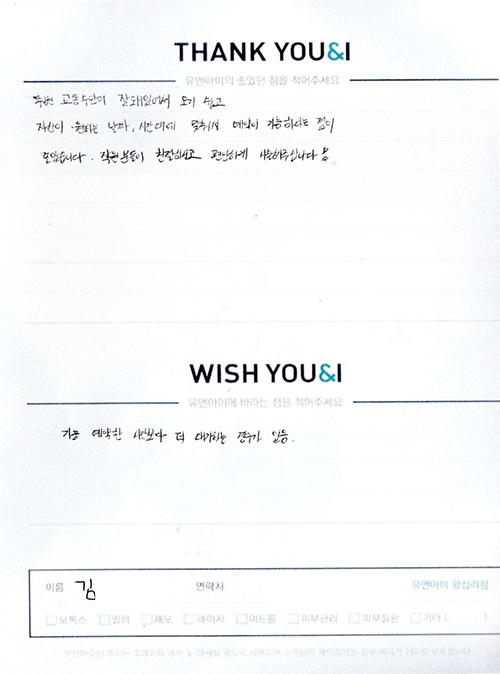 THANK YOU&I
유앤아이의 좋았던 점을 적어주세요
주변 교통수단이 잘돼있어서 오기 쉽고
자신이 원하는 날짜, 시간대에 맞춰서 예약이 가능하다는 점이
좋았습니다. 직원분들이 친절하시고 편안하게 시술해주십니다
WISH YOU&I
유앤아이에 바라는 점을 적어주세요
가끔 예약한 시간보다 더 대기하는 경우가 있음.
이름 김 연락처 유앤아이 왕십리점
보톡스 필러 제모 레이저 여드름 피부관리 피부질환 기타 ( )